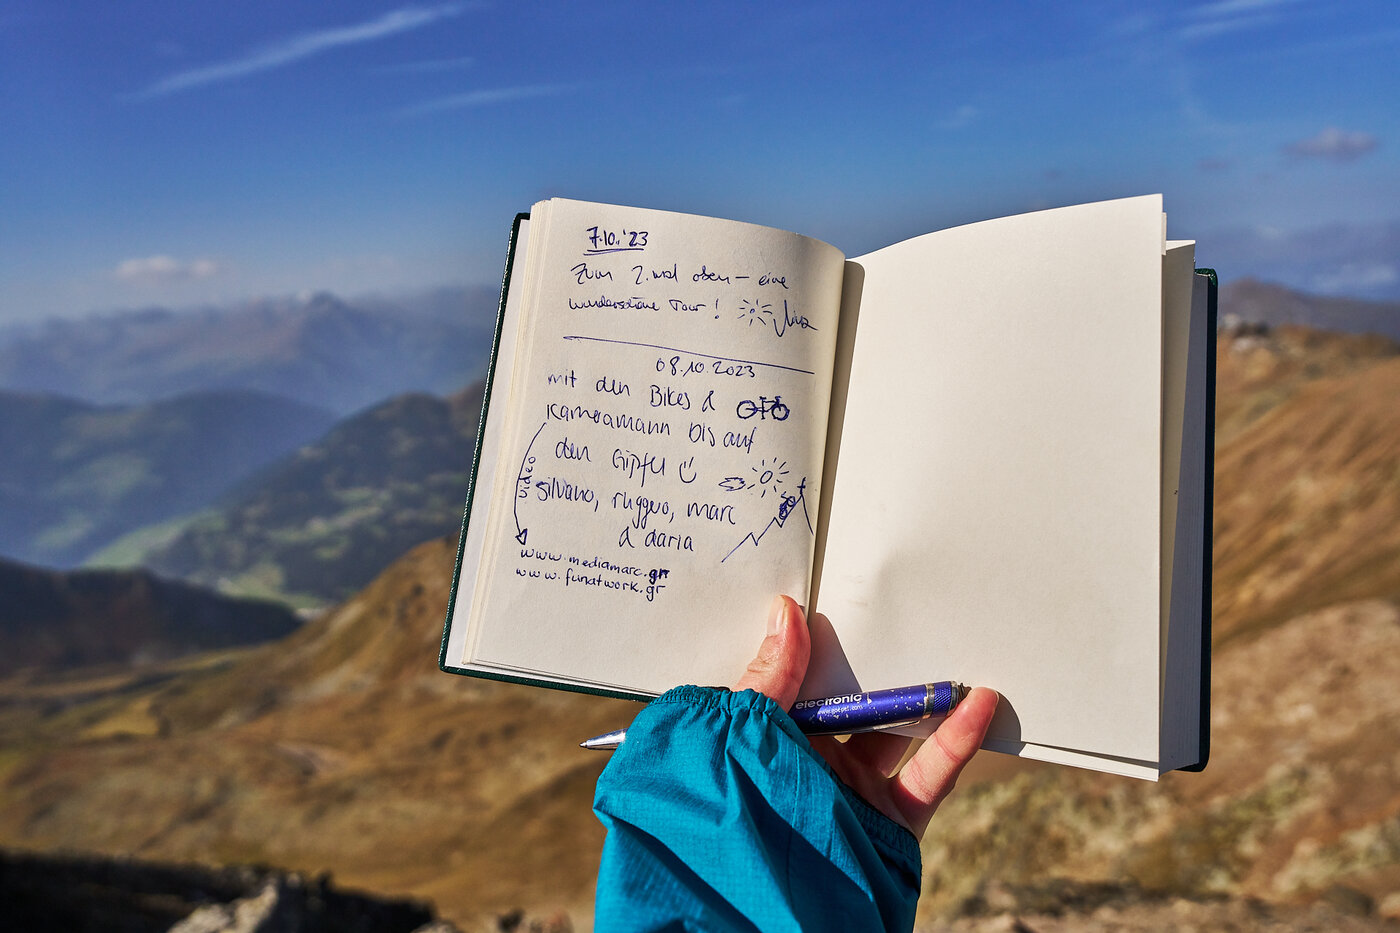 7.10.'23
Zum 2. mal oben – eine
wunderschöne Tour!
08.10.2023
mit den Bikes &
Kameramann bis auf
den Gipfel
video
silvano, ruggero, marc
& daria
www.mediamarc.gr
www.funatwork.gr
electronic